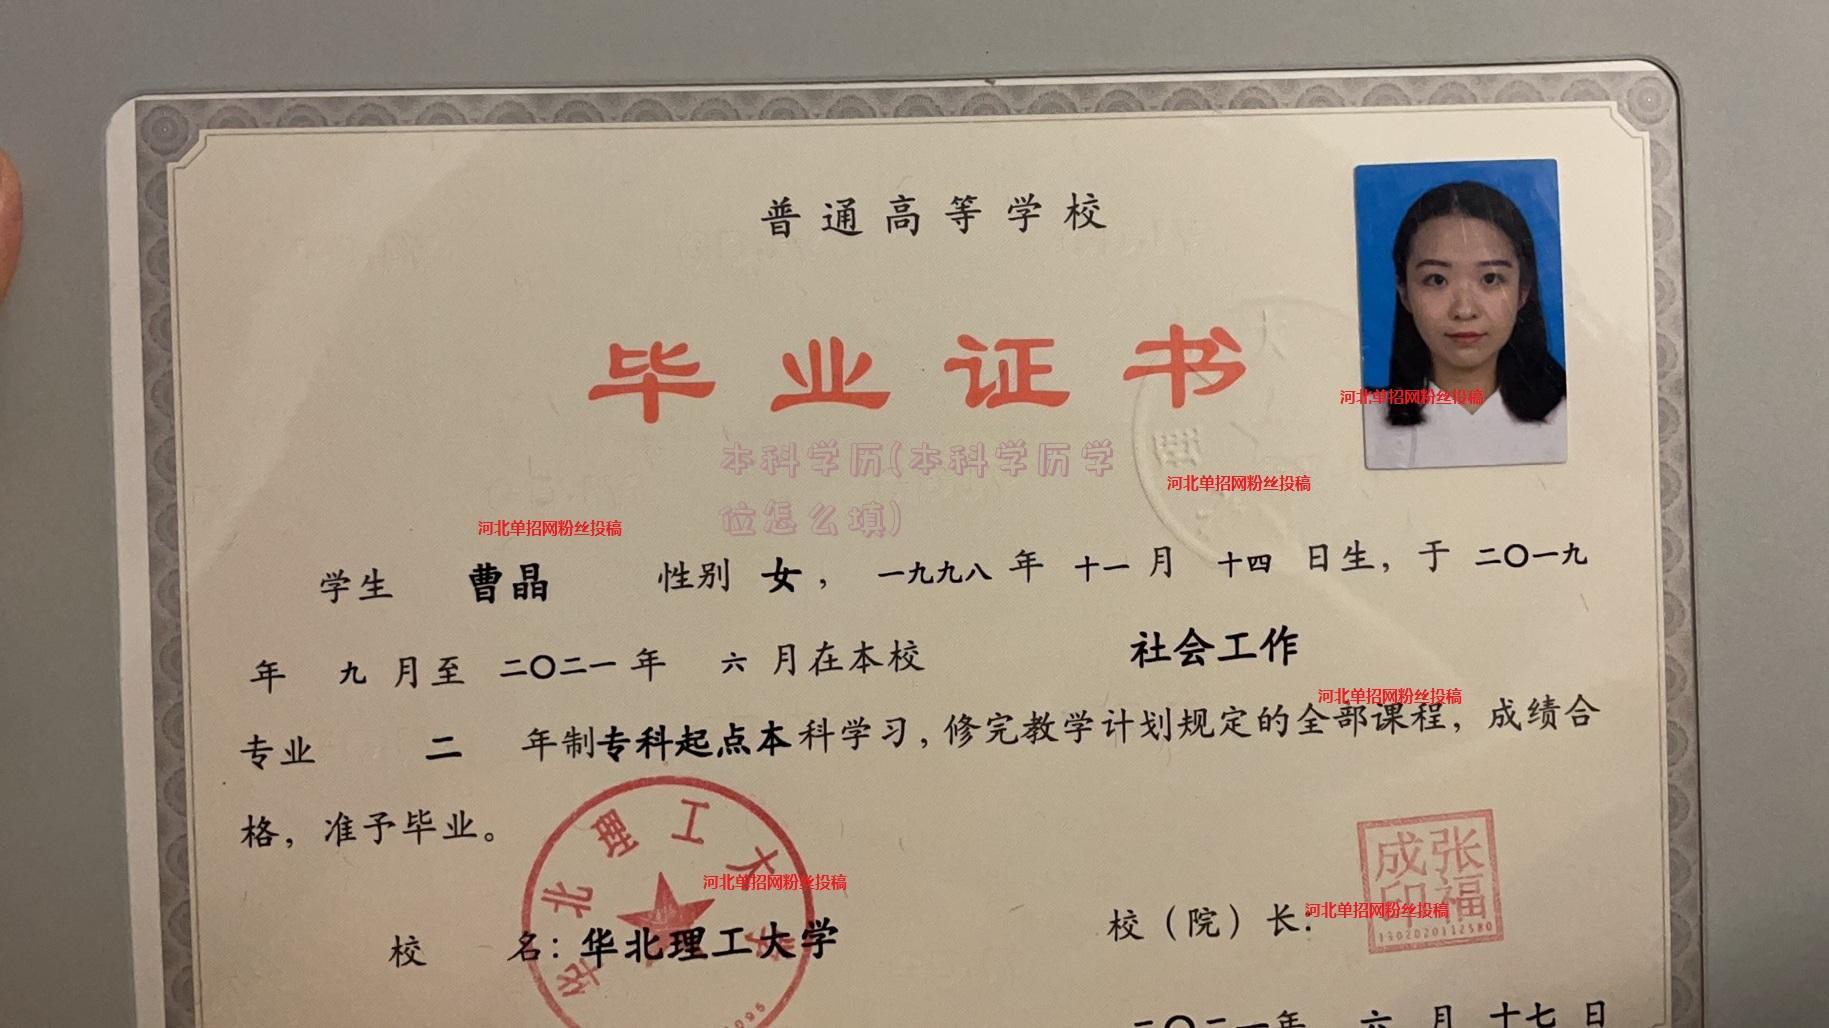 普通高等学校
毕业证书
本科学历(本科学历学
位怎么填)
河北单招网粉丝投稿
河北单招网粉丝投稿
河北单招网粉丝投稿
学生 曹晶 性别 女， 一九九八 年 十一 月 十四 日生，于 二〇一九
年 九 月至 二〇二一 年 六 月在本校 社会工作
河北单招网粉丝投稿
专业 二 年制专科起点本科学习，修完教学计划规定的全部课程，成绩合
格，准予毕业。
华北理工大学
河北单招网粉丝投稿
校 名：华北理工大学
校（院）长：
河北单招网粉丝投稿
张福成印
1302020112580
二〇二一年 六 月 十七 日